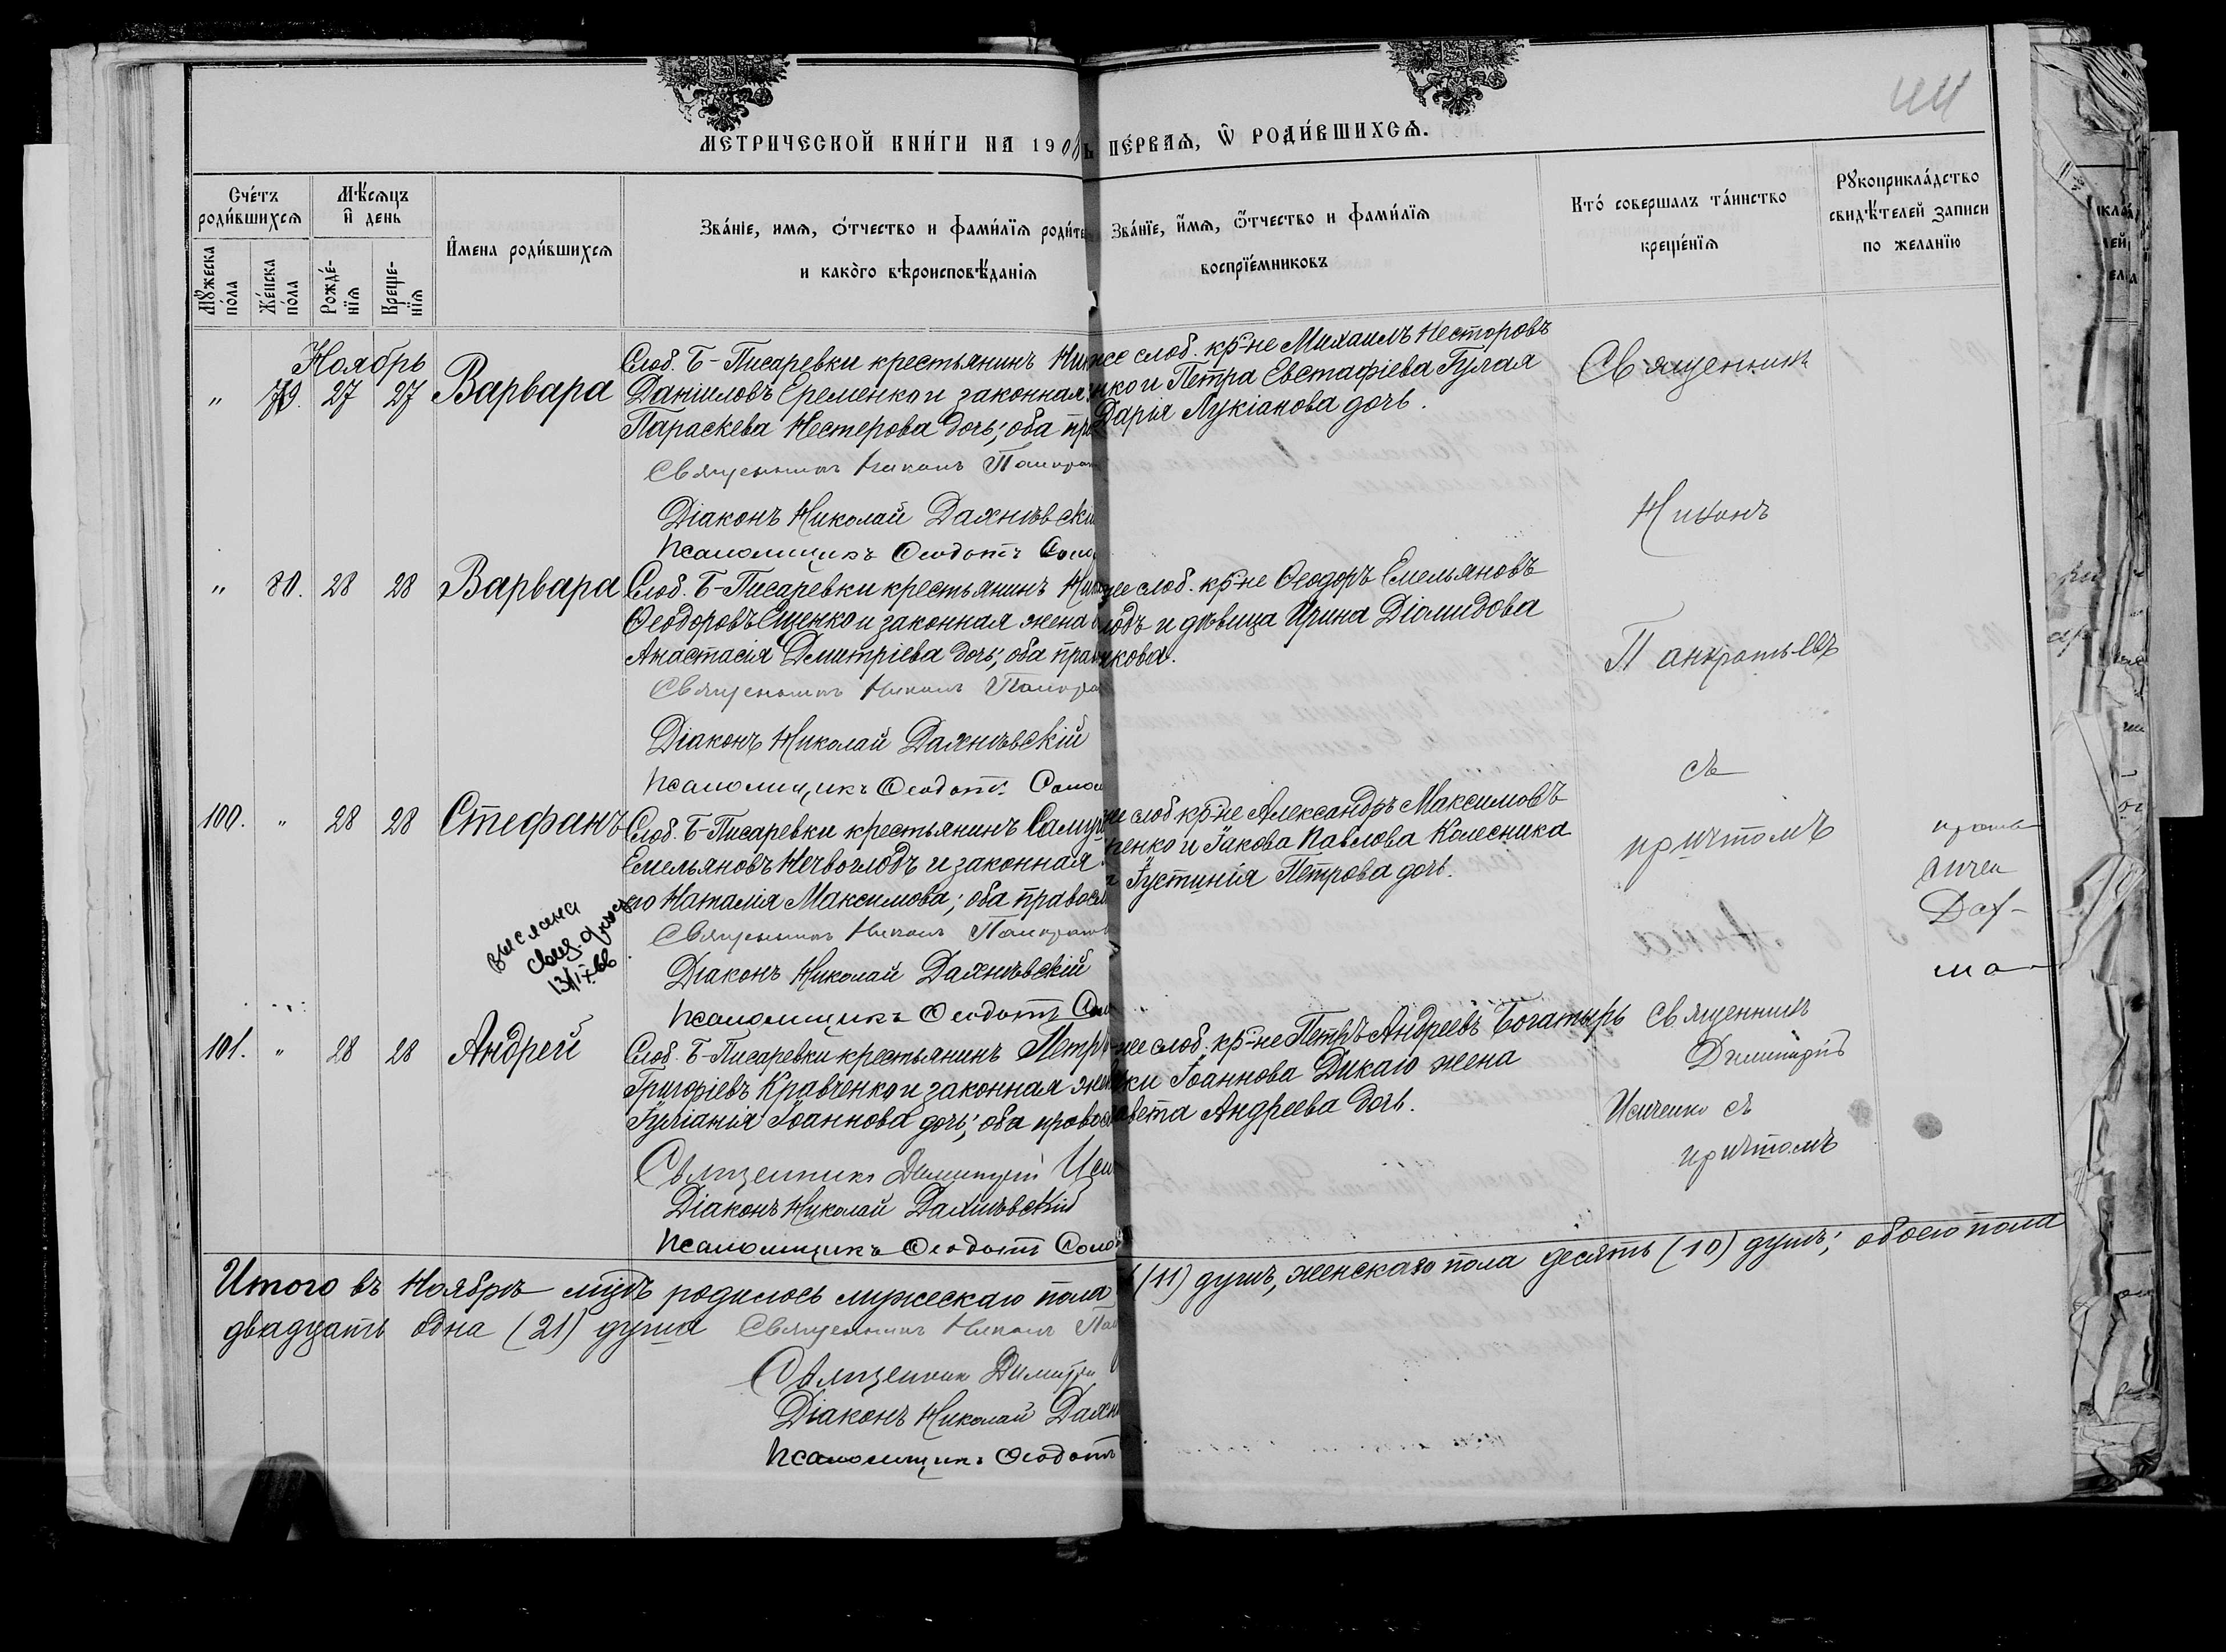 44
МЕТРИЧЕСКОЙ КНИГИ НА 190
ПЕРВАЯ, Ѿ РОДИВШИХСЯ.
Счетъ родившихся
Мужеска пола
Женска пола
Мѣсяцъ и день
Рожденїя
Крещенїя
Имена родившихся
Званїе, имя, отчество и фамилїя родите
и какого вѣроисповѣданїя
Званїе, имя, отчество и фамилїя
воспрїемниковъ
Кто совершалъ таинство
крещенїя
Рукоприкладство
свидѣтелей записи
по желанїю
Ноябрь
" 79. 27 27 Варвара
Слоб. Б-Писаревки крестьянинъ Ни
Даниловъ Еременко и законная
Параскева Нестерова дочь; оба пр
Священникъ Никонъ Панкрат
Діаконъ Николай Дахнѣвски
Псаломщикъ Ѳеодотъ
же слоб. кр-не Михаилъ Несторовъ
нко и Петра Евстафіева Гулая
Дарія Лукіанова дочь.
Священникъ
Никонъ
Панкратьевъ
съ
причтомъ
" 80. 28 28 Варвара
Слоб. Б-Писаревки крестьянинъ Ни
Ѳеодоровъ Ященко и законная жена
Анастасія Димитріева дочь; оба прав
Священникъ Никонъ Панкра
Діаконъ Николай Дахнѣвскій
Псаломщикъ Ѳеодотъ Соло
же слоб. кр-не Ѳеодоръ Емельяновъ
лодъ и дѣвица Ирина Діамидова
кова.
100. " 28 28 Стефанъ
Слоб. Б-Писаревки крестьянинъ Саму
Емельяновъ Нечволодъ и законная
его Наталія Максимова; оба правосл
Священникъ Никонъ Панкрать
Діаконъ Николай Дахнѣвскій
Псаломщикъ Ѳеодотъ Соло
выслана
13/IX 66
же слоб кр-не Александръ Максимовъ
ненко и Іакова Павлова Колесника
Іустинія Петрова дочь.
101. " 28 28 Андрей
Слоб. Б-Писаревки крестьянинъ Петръ
Григоріевъ Кравченко и законная жен
Іуліанія Іоаннова дочь; оба правосл
Священникъ Димитрій Иси
Діаконъ Николай Дахнѣвскій
Псаломщикъ Ѳеодотъ Соло
же слоб. кр-не Петръ Андреевъ Богатырь
ки Іоаннова Дикаго жена
авета Андреева дочь.
Священникъ
Димитрій
Исиченко съ
причтомъ
Итого въ Ноябрѣ м-цѣ родилось мужескаго пола
(11) душъ, женскаго пола десять (10) душъ; обоего пола
двадцать одна (21) душа
Священникъ Никонъ Пан
Священникъ Димитри
Діаконъ Николай Дахн
Псаломщикъ Ѳеодотъ